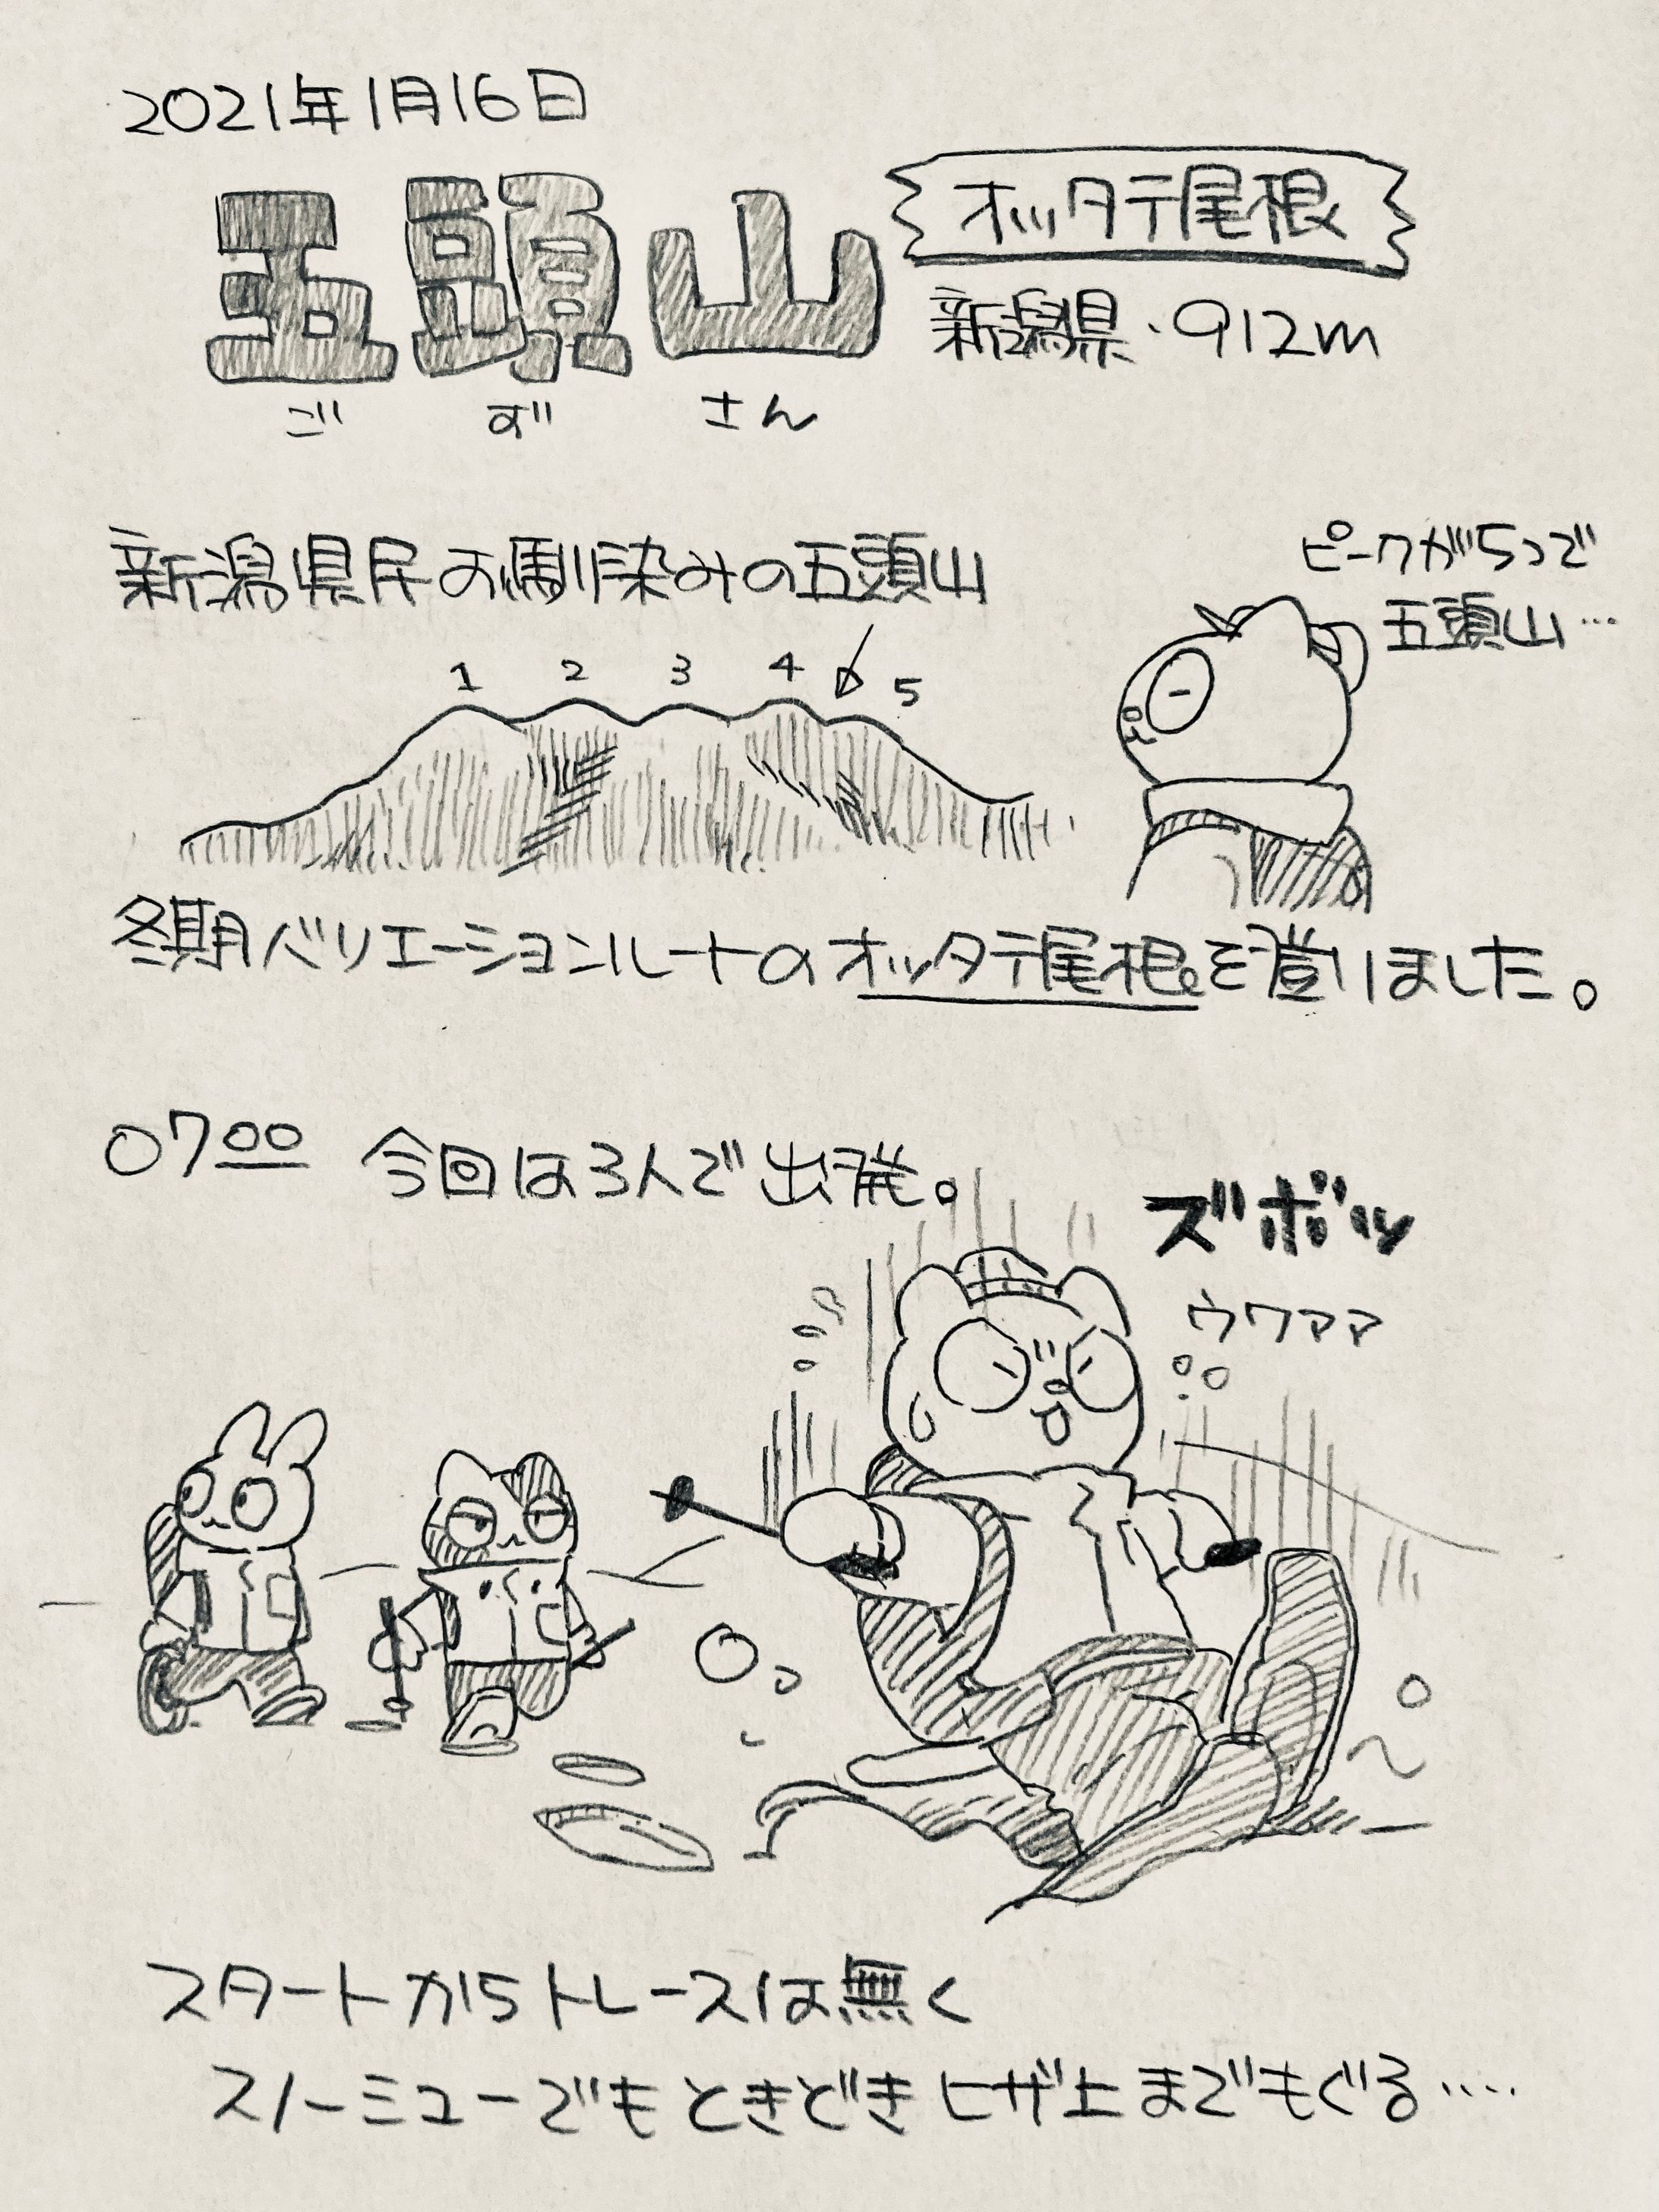 2021年1月16日
五頭山
ごずさん
オッタテ尾根
新潟県・912m
新潟県民お馴染みの五頭山
ピークが5つで
五頭山…
1 2 3 4 5
冬期バリエーションルートのオッタテ尾根を登りました。
0700 今回は3人で出発。
ズボッ
ウワァァ
スタートからトレースは無く
スノーシューでもときどきヒザ上までもぐる‥‥